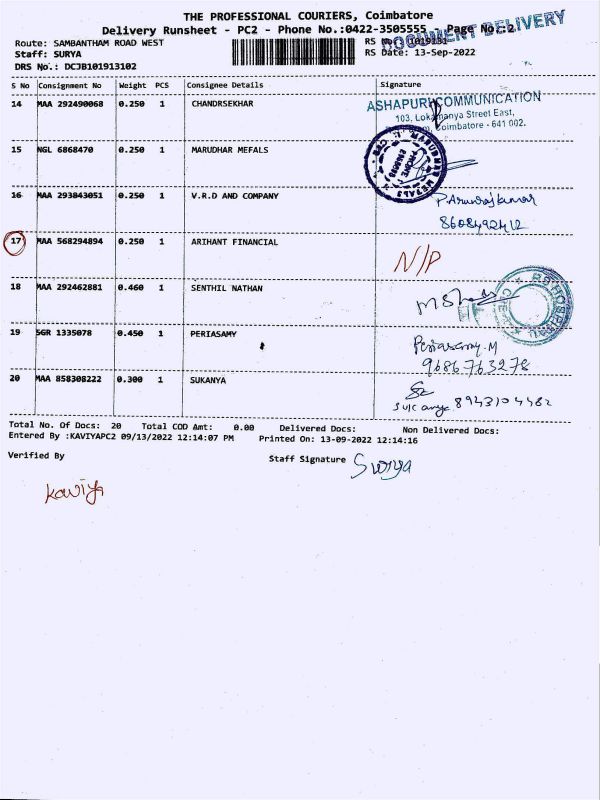 THE PROFESSIONAL COURIERS, Coimbatore
Delivery Runsheet - PC2 - Phone No.:0422-3505555 - Page No.:2
DOCUMENT DELIVERY
Route: SAMBANTHAM ROAD WEST
RS No.: 1019131
Staff: SURYA
RS Date: 13-Sep-2022
DRS No.: DCJB101913102
S No Consignment No Weight PCS Consignee Details Signature
14 MAA 292490068 0.250 1 CHANDRSEKHAR
ASHAPURI COMMUNICATION
103, Lokamanya Street East,
Coimbatore - 641 002.
15 NGL 6868470 0.250 1 MARUDHAR MEFALS
16 MAA 293843051 0.250 1 V.R.D AND COMPANY
P. Arunrajkumar
8608492412
17 MAA 568294894 0.250 1 ARIHANT FINANCIAL N/P
18 MAA 292462881 0.460 1 SENTHIL NATHAN
HOSPITAL
19 SGR 1335078 0.450 1 PERIASAMY
Periasamy.M
9686763278
20 MAA 858308222 0.300 1 SUKANYA
8943104482
Total No. Of Docs: 20 Total COD Amt: 0.00 Delivered Docs: Non Delivered Docs:
Entered By :KAVIYAPC2 09/13/2022 12:14:07 PM Printed On: 13-09-2022 12:14:16
Verified By Staff Signature Surya
Kaviya